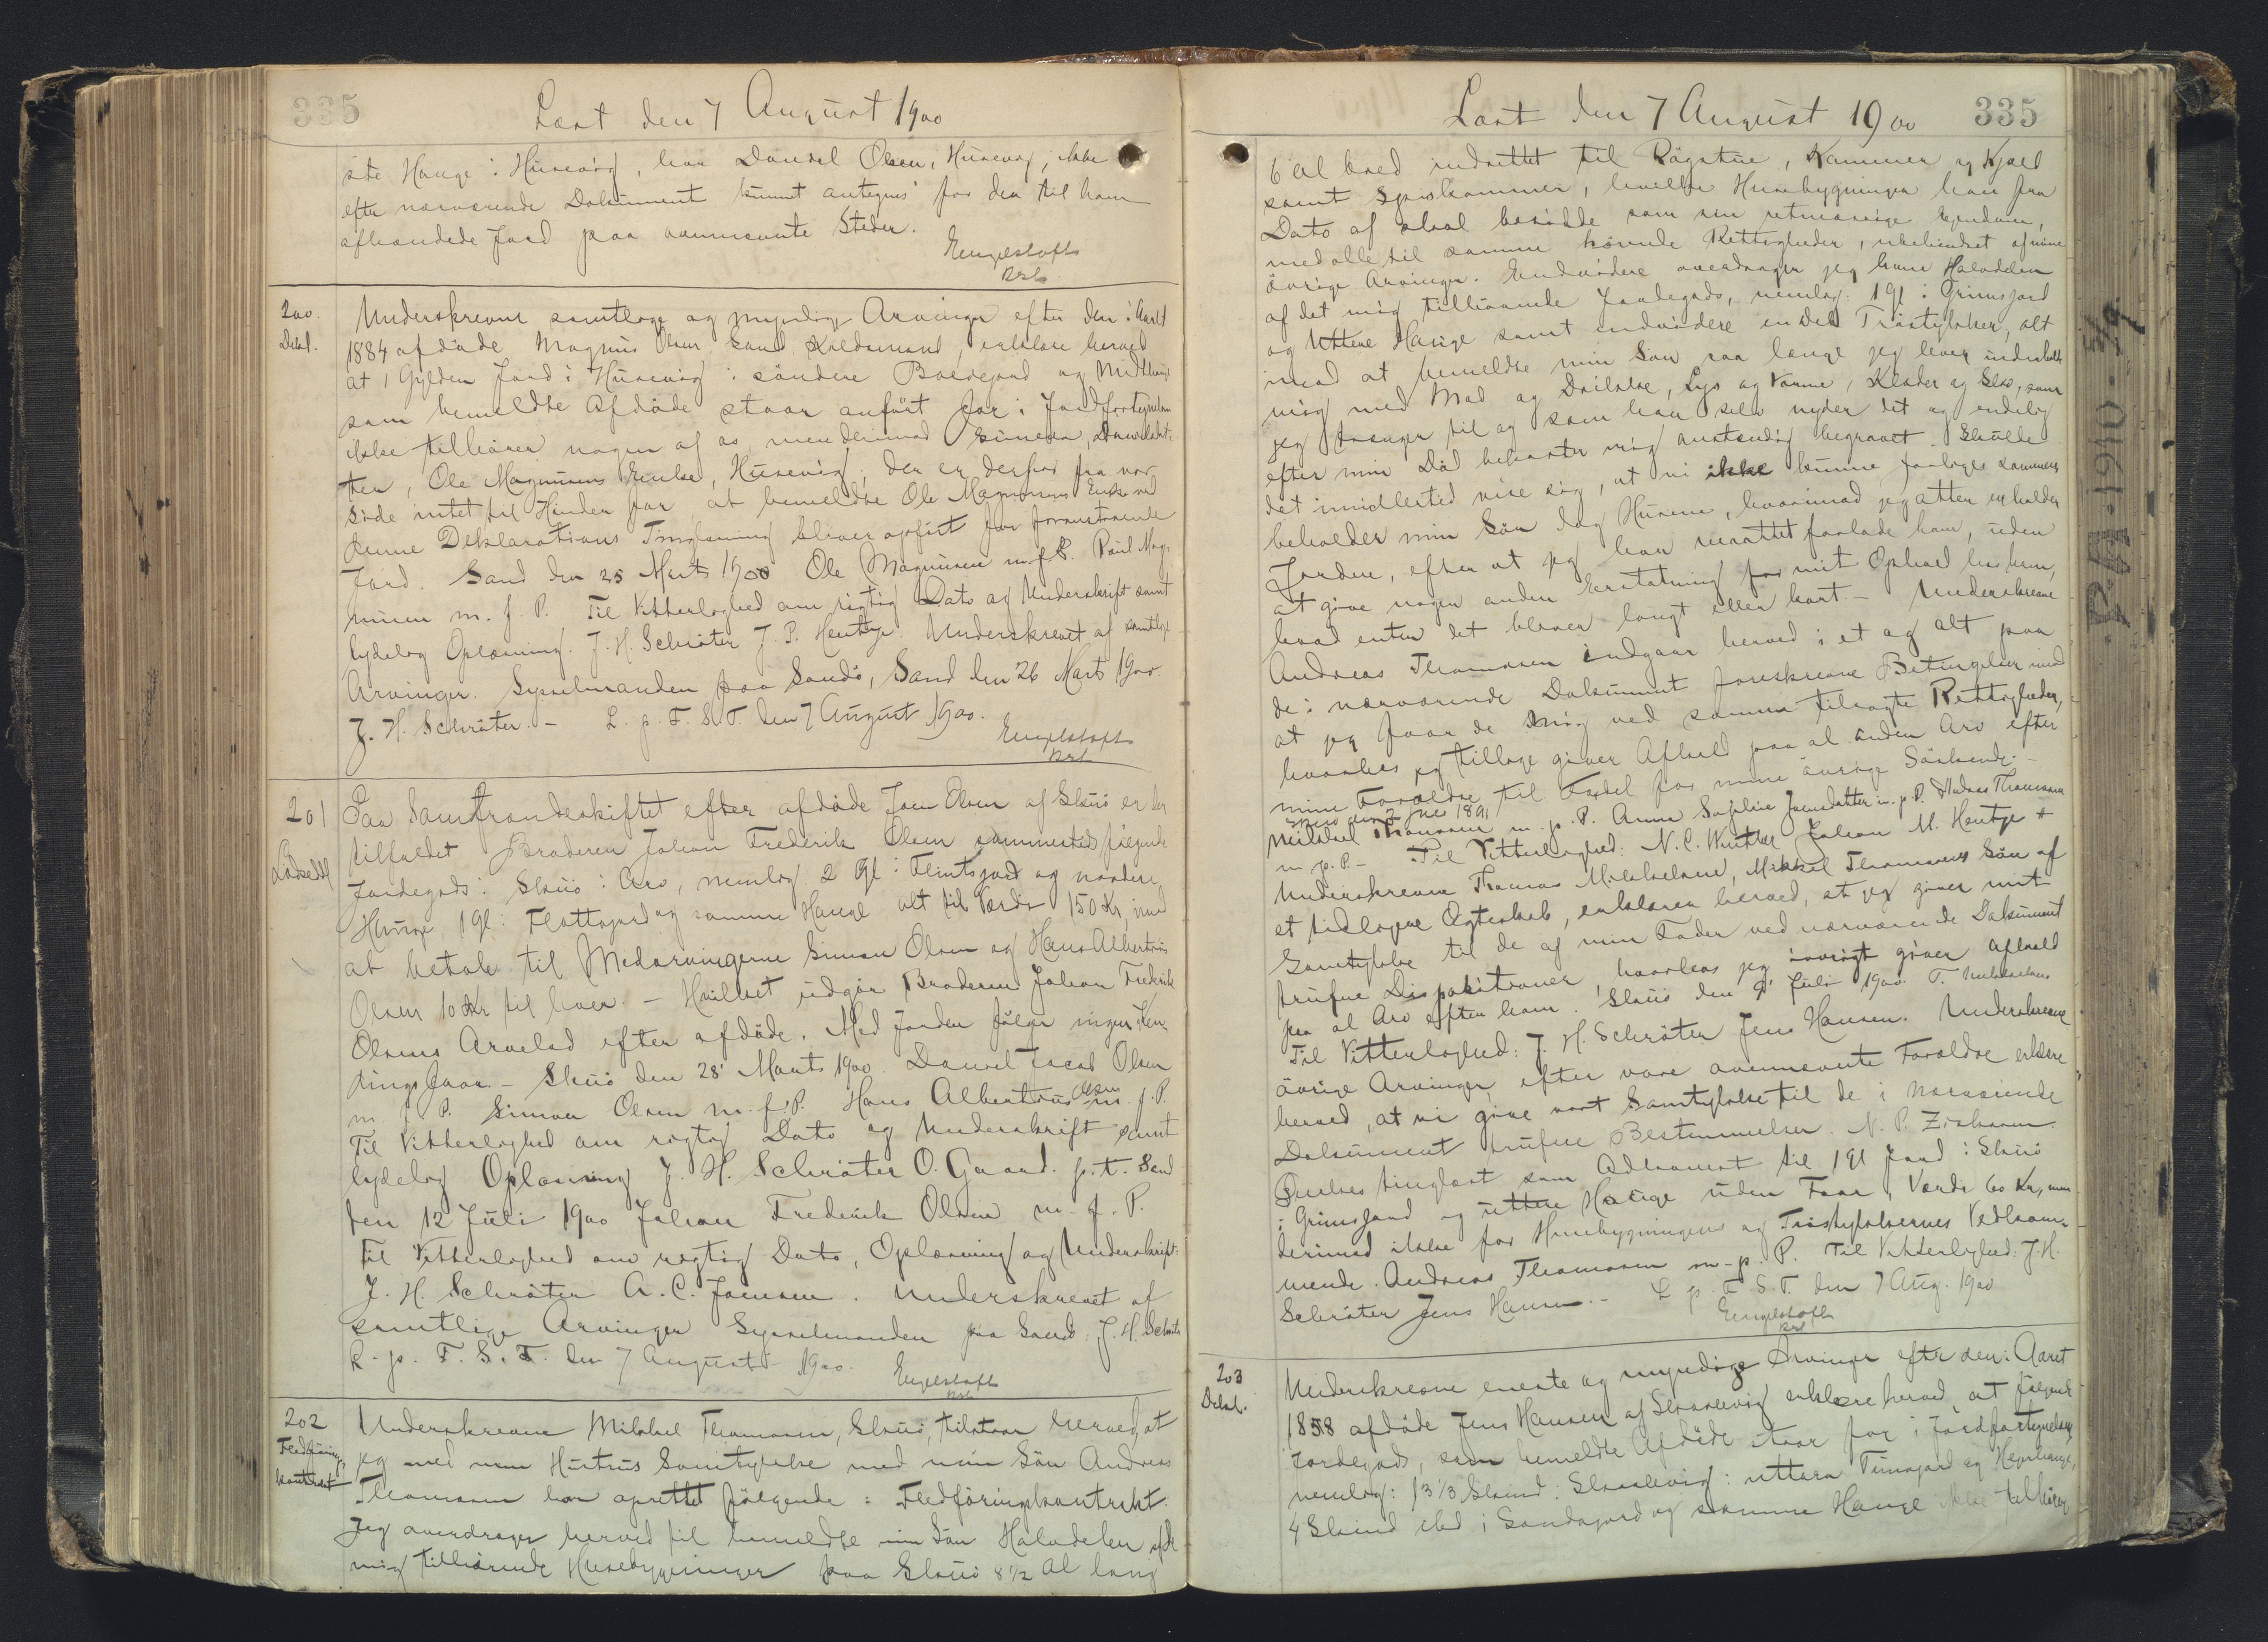 335
Læst den 7 August 1900
ste Hauge i Husevig, har Daniel Olsen, Husevig, ikke
efter nærværende Dokument kunnet antegnes for den til ham
afhændede Jord paa ovennævnte Steder.
Engelstoft
200.
Dekl.
Underskrevne samtlige og myndige Arvinger efter den i Aaret
1884 afdöde Magnus Olsen Sand erklære herved
at 1 Gylden Jord i Husevig i söndere Boeregard og Midthauge
som bemeldte Afdöde staar anfört for i Jordfortegnelsen
ikke tilhörer nogen af os, men derimod
Ole Magnusens Enke, Husevig; der er derfor fra vor
Side intet til Hinder for at bemeldte Ole Magnusens Enke ved
denne Deklarations Tinglæsning bliver opfört for foranstaaende
Jord. Sand den 25 Marts 1900 Ole Magnusen m. f. P. Poul Mag-
nusen m. f. P. Til Vitterlighed om rigtig Dato og Underskrift samt
lydelig Oplæsning. J. H. Schröter J. P. Hentze. Underskrevet af samtlige
Arvinger. Sysselmanden paa Sandö, Sand den 26 Marts 1900.
J. H. Schröter. - L. p. F. S. T. den 7 August 1900.
Engelstoft
201
Paa Samfrændeskiftet efter afdöde Joen Olsen af Skuö er der
tilfaldet Broderen Johan Frederik Olsen sammesteds fölgende
Jordegods i Skuö i Arv, nemlig 2 gl i Flintsjord og nordere
Hauge, 1 gl i Flattajord og samme Hauge alt til Værdi 150 Kr, imod
at betale til Medarvingerne Simon Olsen og Hans Albertinus
Olsen 10 Kr til hver. - Hvilket udgör Broderen Johan Frederik
Olsens Arvelod efter afdöde. Med Jorden fölger ingen Hen-
tings Faar. - Skuö den 28' Marts 1900. Daniel Jacob Olsen
m. f. P. Simon Olsen m. f. P. Hans Albertinus Olsen m. f. P.
Til Vitterlighed om rigtig Dato og Underskrift samt
lydelig Oplæsning J. H. Schröter O. Gaard. p.t. Sand
den 12 Juli 1900 Johan Frederik Olsen m. f. P.
Til Vitterlighed om rigtig Dato, Oplæsning og Underskrift:
J. H. Schröter A. C. Joensen. Underskrevet af
samtlige Arvinger Sysselmanden paa Sandö: J. H. Schröter
L. p. F. S. T. den 7 August 1900.
Engelstoft
202
Fledförings-
kontrakt
Underskrevne Mikkel Thomasen, Skuö, tilstaar herved, at
jeg med min Hustrus Samtykke med min Sön Andreas
Thomasen har oprettet fölgende: Fledföringskontrakt.
Jeg overdrager herved til bemeldte min Sön Halvdelen af de
mig tilhörende Husebygninger paa Skuö 8½ Al lang
Læst den 7 August 1900
335
6 Al bred indrettet til Rögstue, Kammer og Kjæld
samt Spiskammer, hvilke Husebygninger han fra
Dato af skal besidde som sin retmæssige Ejendom,
med alle til samme hörende Rettigheder, ubehindret af mine
övrige Arvinger. Endvidere overdrager jeg ham Halvdelen
af det mig tilhörende Jordegods, nemlig: 1 gl i Grimsjord
og Uttere Hauge samt endvidere en Del Tröstykker, alt
imod at bemeldte min Sön saa længe jeg lever underholder
mig med Mad og Drikke, Lys og Varme, Klæder og Sko, som
jeg trænger til og som han selv nyder det og endelig
efter min Död bekoster mig anstændig begravet. Skulde
det imidlertid vise sig, at vi ikke kunne forliges sammen,
beholder min Sön dog Husene, hvorimod jeg atter erholder
Jorden, efter at jeg har maattet forlade ham, uden
at give nogen anden Erstatning for mit Ophold hos ham,
hvad enten det bliver langt eller kort. - Underskrevne
Andreas Thomasen indgaar herved i et og alt paa
de i nærværende Dokument foreskrevne Betingelser imod
at jeg faar de mig ved samme tilsagte Rettigheder,
hvorhos jeg tillige giver Afkald paa al anden Arv efter
mine Forældre til Fordel for mine övrige Söskende. -
Mikkel Thomasen m. p. P. Anna Sophie Joensdatter m. p. P. Andreas Thomasen
m. p. P. - Til Vitterlighed: N. C. Winther Johan M. Hentze
Underskrevne Thomas Mikkelsen, Mikkel Thomasens Sön af
et tidligere Ægteskab, erklærer herved, at jeg giver mit
Samtykke til de af min Fader ved nærværende Dokument
trufne Dispositioner, hvorhos jeg iövrigt giver Afkald
paa al Arv efter ham. Skuö den 9' Juli 1900. T. Mikkelsen
Til Vitterlighed: J. H. Schröter Jens Hansen. Underskrevne
övrige Arvinger efter vore ovennævnte Forældre erklære
herved, at vi give vort Samtykke til de i nærværende
Dokument trufne Bestemmelser. N. P.
Önskes tinglæst som Adkomst til 1 gl Jord i Skuö
i Grimsjord og uttere Hauge uden Faar, Værdi 60 Kr, men
derimod ikke for Husebygningens og Tröstykkernes Vedkom-
mende. Andreas Thomasen m. p. P. Til Vitterlighed: J. H.
Schröter Jens Hansen. - L. p. F. S. T. den 7 Aug. 1900
Engelstoft
203
Dekl.
Underskrevne eneste og myndige Arvinger efter den i Aaret
1858 afdöde Jens Hansen af Skaalevig erklære herved, at fölgende
Jordegods, som bemeldte Afdöde staar for i Jordfortegnelsen,
nemlig: 13 1/3 Skind i Skaalevig: uttara Tunsjord og
4 Skind ibd i Sandagard og samme Hauge ikke tilhörer